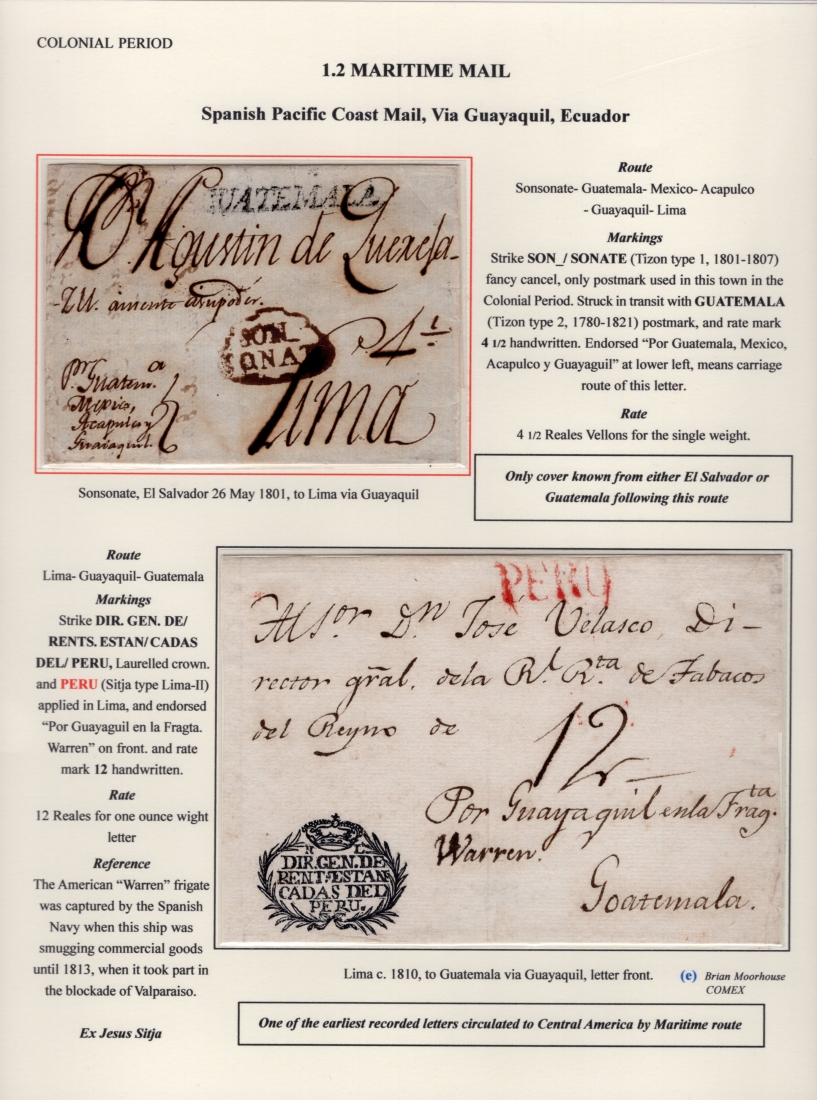 COLONIAL PERIOD
1.2 MARITIME MAIL
Spanish Pacific Coast Mail, Via Guayaquil, Ecuador
UATEMALA
Dn Agustin de Querexa-
SON_
SONAT
4 1/2
Lima
Pr. Guatema.
Mexico,
Acapulco y
Guaiaquil.
Sonsonate, El Salvador 26 May 1801, to Lima via Guayaquil
Route
Sonsonate- Guatemala- Mexico- Acapulco
- Guayaquil- Lima
Markings
Strike SON_/ SONATE (Tizon type 1, 1801-1807)
fancy cancel, only postmark used in this town in the
Colonial Period. Struck in transit with GUATEMALA
(Tizon type 2, 1780-1821) postmark, and rate mark
4 1/2 handwritten. Endorsed “Por Guatemala, Mexico,
Acapulco y Guayaguil” at lower left, means carriage
route of this letter.
Rate
4 1/2 Reales Vellons for the single weight.
Only cover known from either El Salvador or
Guatemala following this route
Route
Lima- Guayaquil- Guatemala
Markings
Strike DIR. GEN. DE/
RENTS. ESTAN/ CADAS
DEL/ PERU, Laurelled crown.
and PERU (Sitja type Lima-II)
applied in Lima, and endorsed
“Por Guayaguil en la Fragta.
Warren” on front. and rate
mark 12 handwritten.
Rate
12 Reales for one ounce wight
letter
Reference
The American “Warren” frigate
was captured by the Spanish
Navy when this ship was
smugging commercial goods
until 1813, when it took part in
the blockade of Valparaiso.
Ex Jesus Sitja
PERU
Al Sor. Dn. José Velasco, Di-
rector gral. de la Rl. Rta. de Tabacos
del Reyno de
12
Por Guayaquil en la Fragta.
Warren.
Goatemala.
N L
DIR.GEN.DE
RENTS.ESTAN
CADAS DEL
PERU.
Lima c. 1810, to Guatemala via Guayaquil, letter front.
(e) Brian Moorhouse
COMEX
One of the earliest recorded letters circulated to Central America by Maritime route